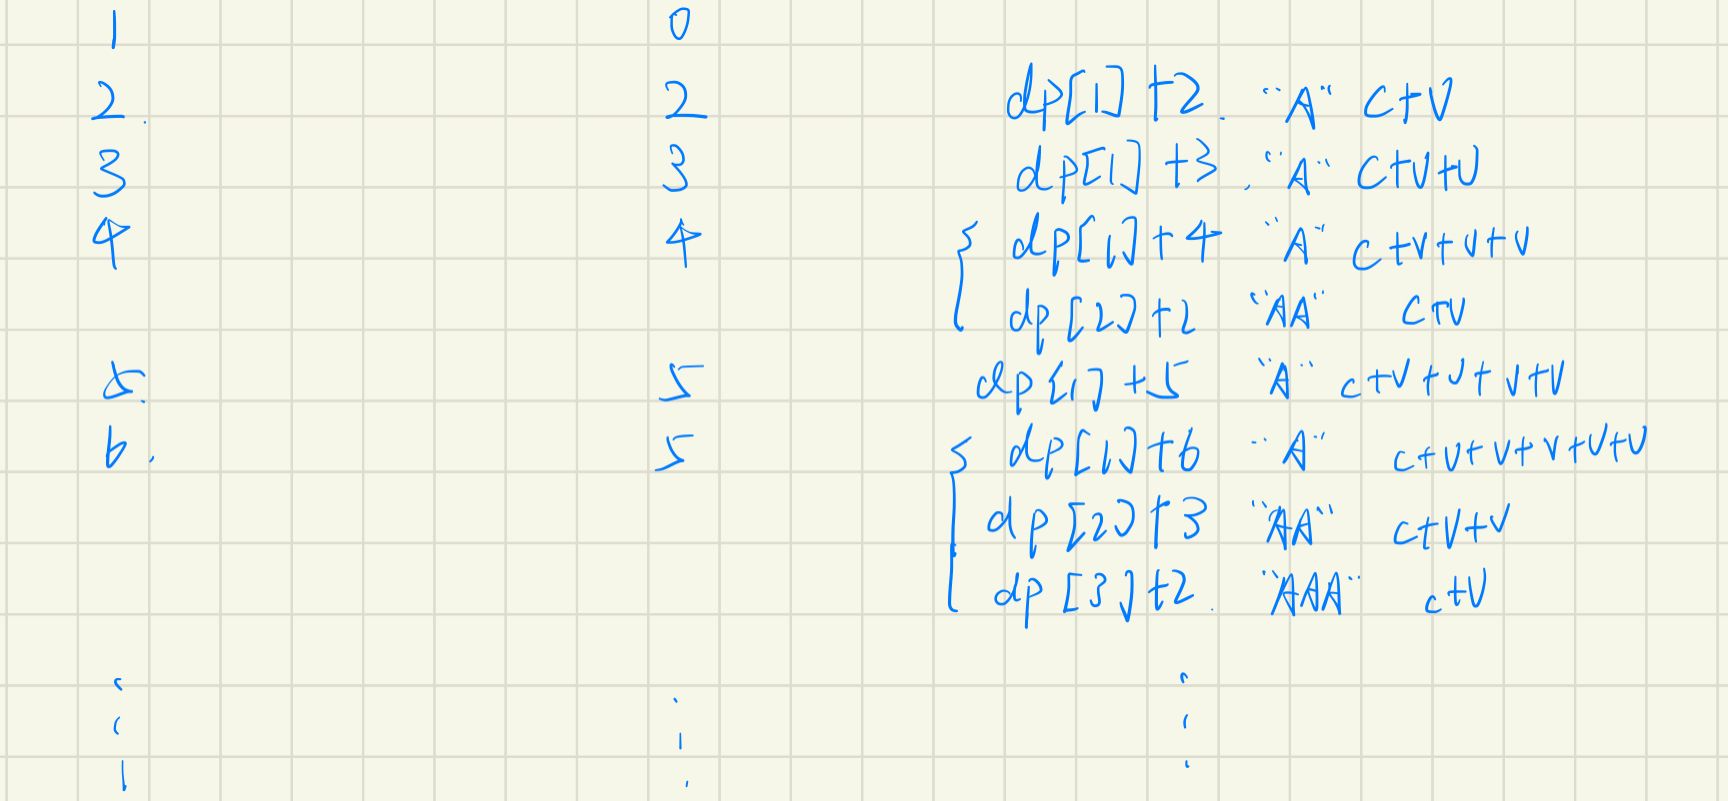 1 0
2. 2 dp[1]+2. "A" C+V
3 3 dp[1]+3. "A" C+V+V
4 4 { dp[1]+4 "A" C+V+V+V
dp[2]+2 "AA" C+V
5. 5 dp[1]+5 "A" C+V+V+V+V
6. 5 { dp[1]+6 "A" C+V+V+V+V+V
dp[2]+3 "AA" C+V+V
dp[3]+2. "AAA" C+V